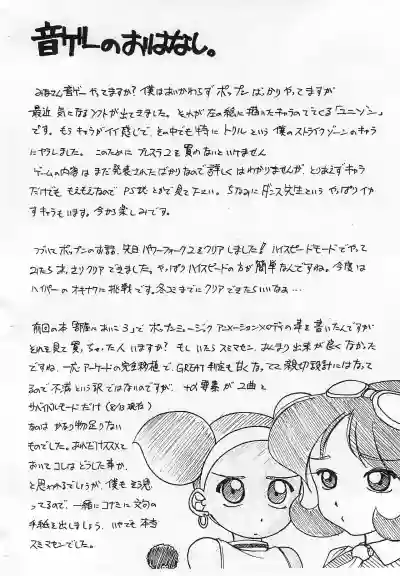 音ゲーのおはなし。
みなさん音ゲーやってますか?僕はあいかわらずポップンばかりやってますが
最近気になるソフトが出てきました。それが左の絵に描いたキャラのでてくる「ユニゾン」
です。もうキャラがイイ感じで、その中でも特にトリルという僕のストライクゾーンのキャラ
にヤラレました。このためにプレステ2を買わないといけません
ゲームの内容はまだ発表されたばかりなので詳しくはわかりませんが、とりあえずキャラ
だけでももえもえなので PS誌とかで見て下さい。ちなみにダンス先生というやっぱりイカ
すキャラもいます。今から楽しみです。
つづいてポップンのお話、先日パワーフォーク2をクリアしました!!ハイスピードモードでやって
みたらあっさりクリアできました。やっぱりハイスピードの方が簡単なんですね。今度は
ハイパーのオキナワに挑戦です。冬コミまでにクリアできたらいいなぁ…
前回の本「部屋においに3」でポップンミュージックアニメーションメロディの事を書いたんですが
それを見て買っちゃった人いますか?もしいたらスミマセン、あんまり出来が良くなかった
ですね、一応アーケードの完全移植で、GREAT判定も甘くなってて親切設計にはなって
るので不満という訳ではないのですが、
の要素が2曲と
サバイバルモードだけ(8/13現在)
なのはかなり物足りない
ものでした。あれだけススメて
おいてコレはどうした事か、
と思われるでしょうが、僕もそう思
ってるので、一緒にコナミに文句の
手紙を出しましょう、いやでも本当
スミマセンでした。